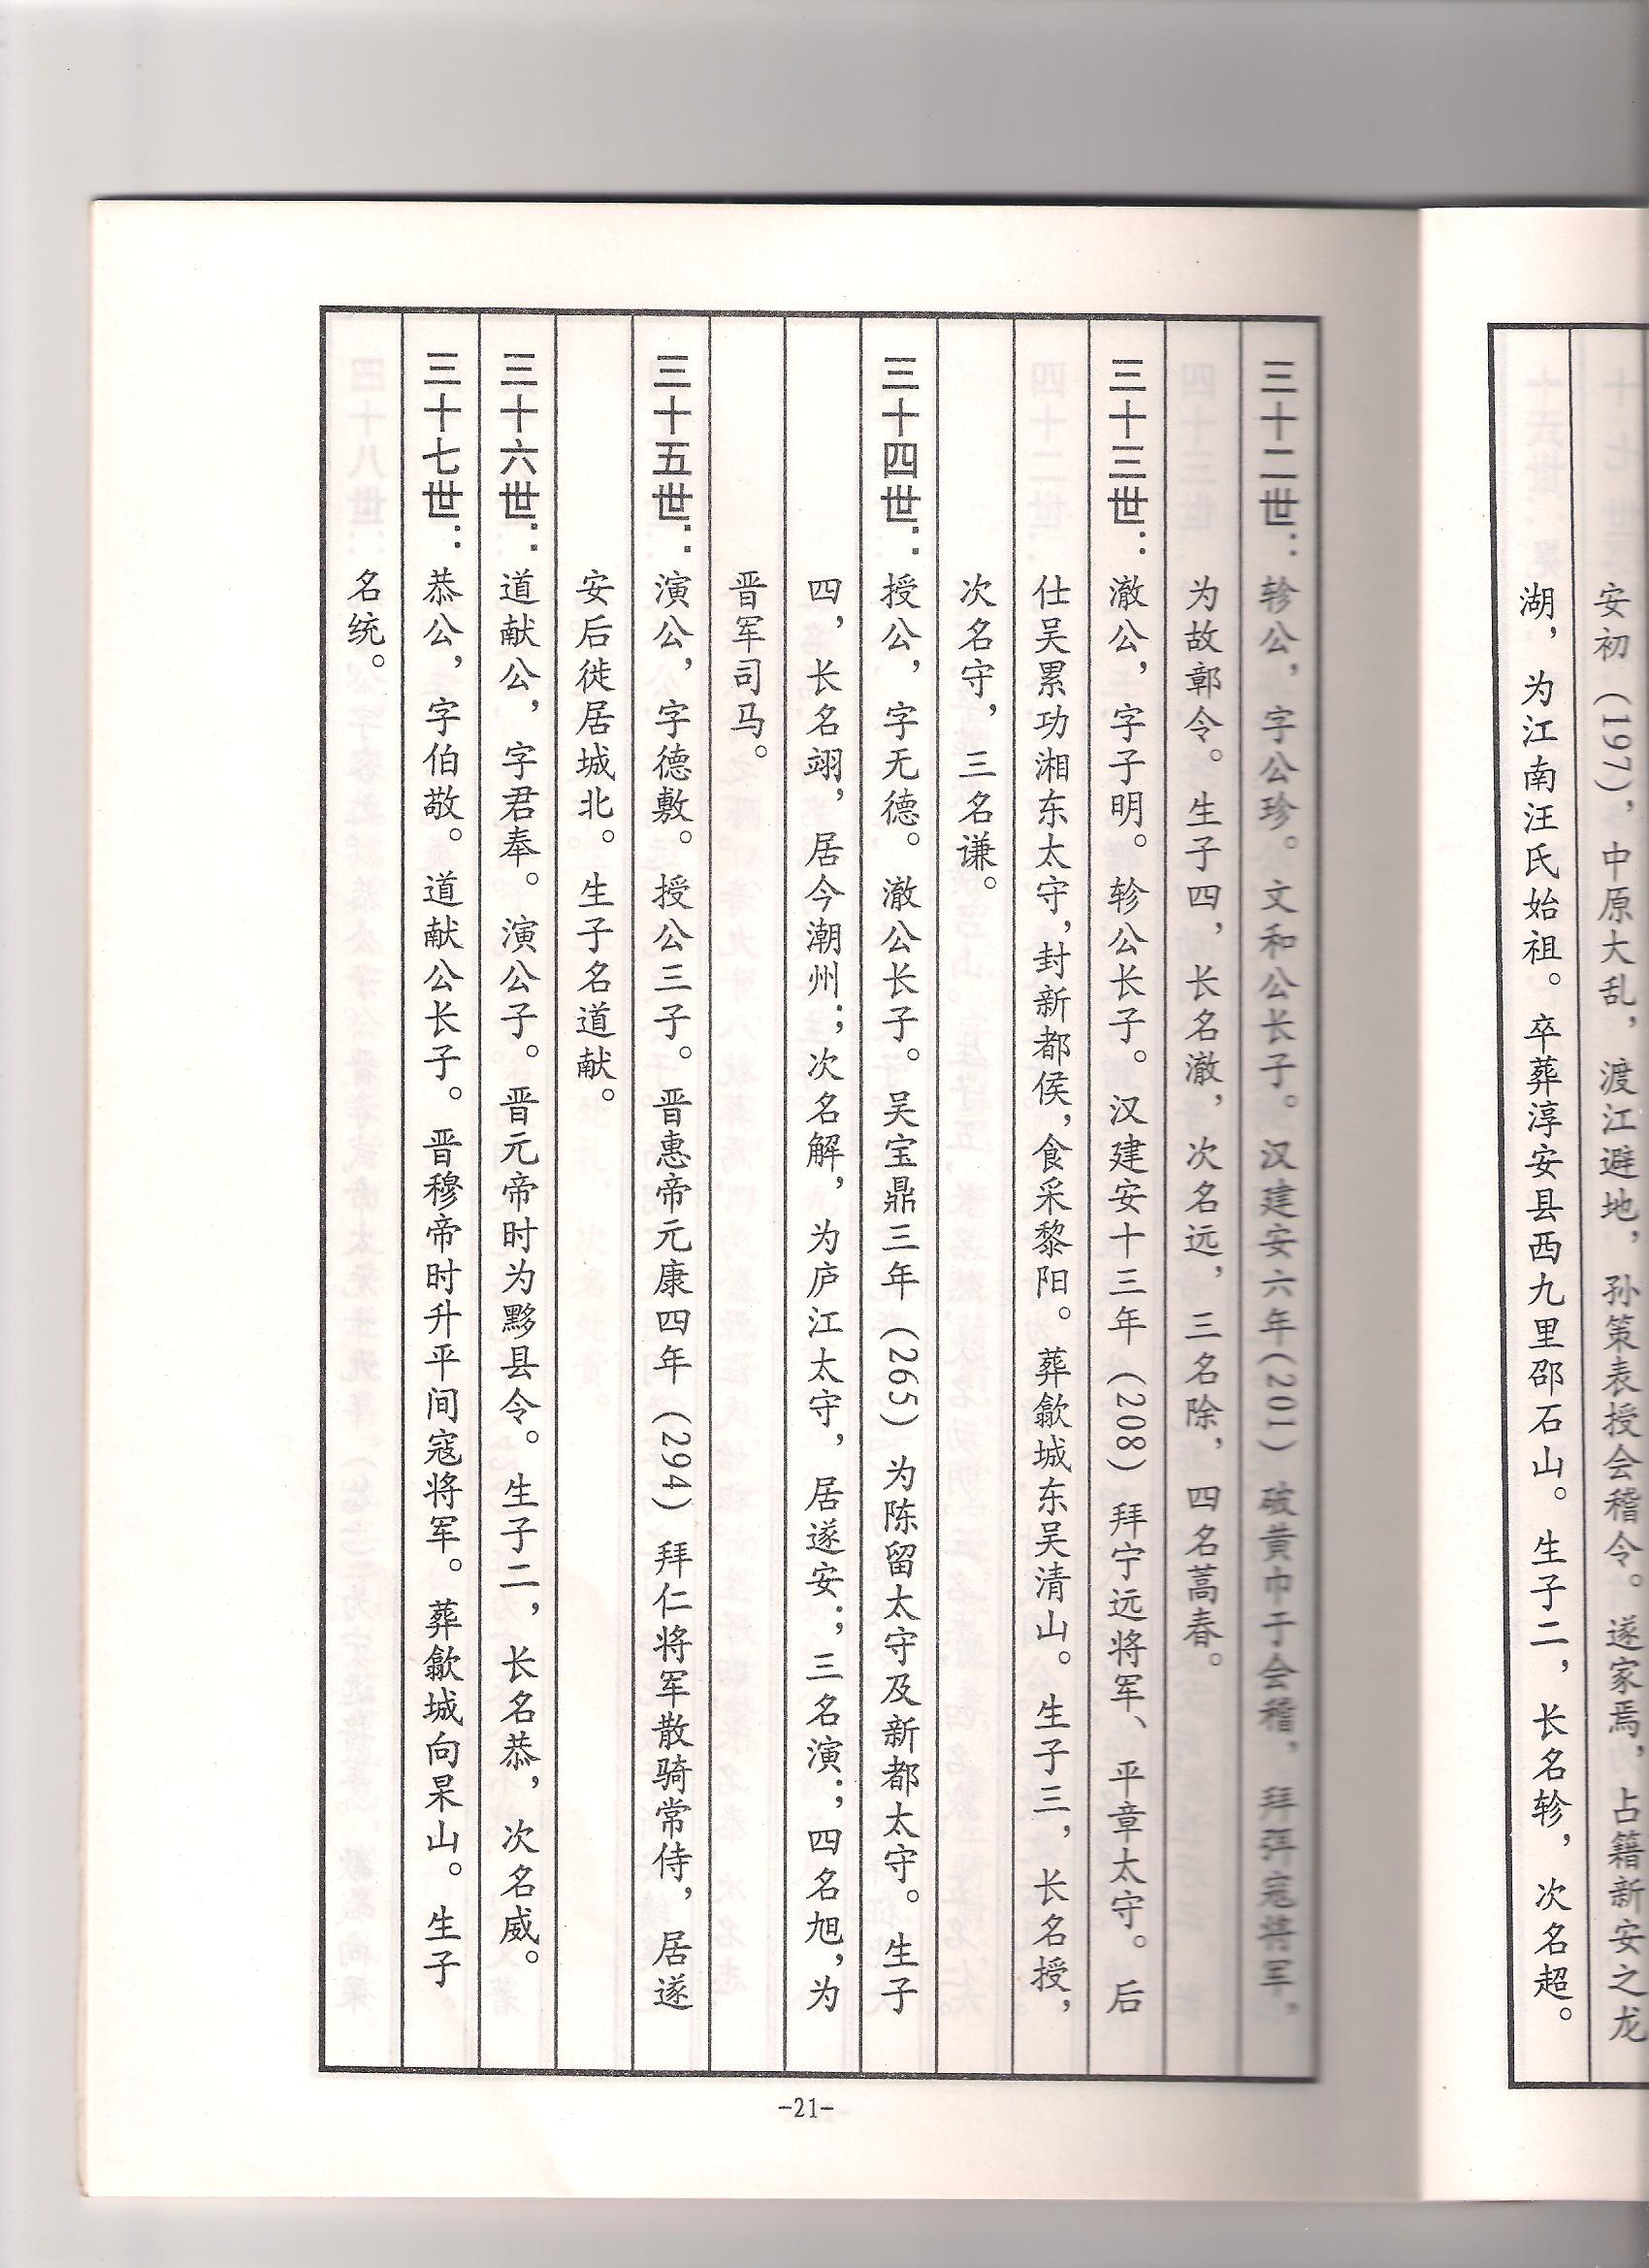 安初（197），中原大乱，渡江避地，孙策表授会稽令。遂家焉，占籍新安之龙
湖，为江南汪氏始祖。卒葬淳安县西九里邵石山。生子二，长名轸，次名超。
三十二世：轸公，字公珍。文和公长子。汉建安六年（201）破黄巾于会稽，拜弭寇将军，
为故鄣令。生子四，长名澈，次名远，三名除，四名蒿春。
三十三世：澈公，字子明。轸公长子。汉建安十三年（208）拜宁远将军、平章太守。后
仕吴累功湘东太守，封新都侯，食采黎阳。葬歙城东吴清山。生子三，长名授，
次名守，三名谦。
三十四世：授公，字无德。澈公长子。吴宝鼎三年（265）为陈留太守及新都太守。生子
四，长名翊，居今潮州；次名解，为庐江太守，居遂安；三名演；四名旭，为
晋军司马。
三十五世：演公，字德敷。授公三子。晋惠帝元康四年（294）拜仁将军散骑常侍，居遂
安后徙居城北。生子名道献。
三十六世：道献公，字君奉。演公子。晋元帝时为黟县令。生子二，长名恭，次名威。
三十七世：恭公，字伯敬。道献公长子。晋穆帝时升平间寇将军。葬歙城向杲山。生子
名统。
-21-